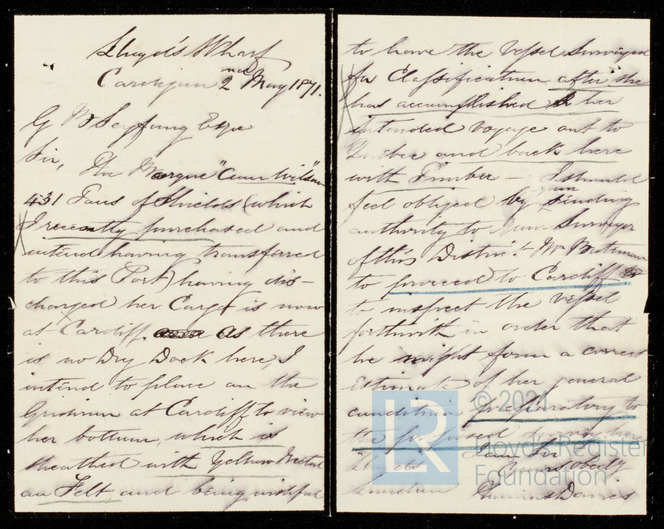 Lloyd's Wharf
Cardigan 2nd May 1871.
G W Seyfang Esqe
Sir, The Barque "Ann Wilson"
431 Tons of Shields (which
I recently purchased and
intend having transferred
to this Port) having dis-
charged her Cargo is now
at Cardiff. As there
is no Dry Dock here, I
intend to place on the
Gridiron at Cardiff to view
her bottom, which is
sheathed with Yellow Metal
on Felt and being wishful
to have the Vessel Surveyed
for Classification after she
has accomplished her
intended voyage out to
Quebec and back here
with Timber — I should
feel obliged by sending
authority to your Surveyor
of this District Mr Bateman
to proceed to Cardiff
to inspect the vessel
forthwith in order that
he might form a correct
Estimate of her general
condition preparatory to
the proposed
Davies
© 2024
LR
Lloyd's Register
Foundation